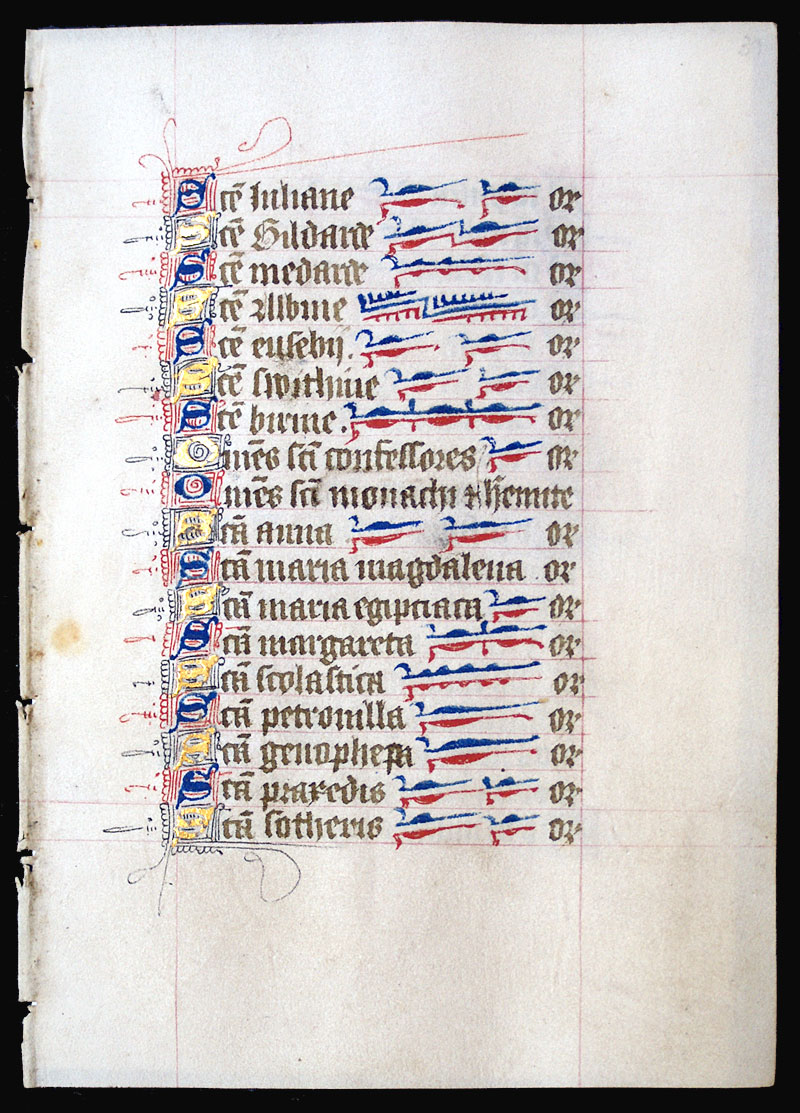 Scē Iuliane or
Scē Gildarde or
Scē medarde or
Scē Albine or
Scē eusebij. or
Scē swithine or
Scē birine. or
Omēs sc̄i confessores or
Omēs sc̄i monachi & h̄emite
Scā anna or
Scā maria magdalena or
Scā maria egipciaca or
Scā margareta or
Scā scolastica or
Scā petronilla or
Scā genophefa or
Scā praxedis or
Scā sotheris or